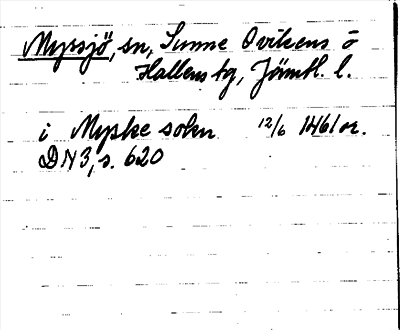 Myssjö, sn, Sunne Ovikens o
Hallens tg, Jämtl. l.
i Myske sokn 12/6 1461 or.
DN 3, s. 620